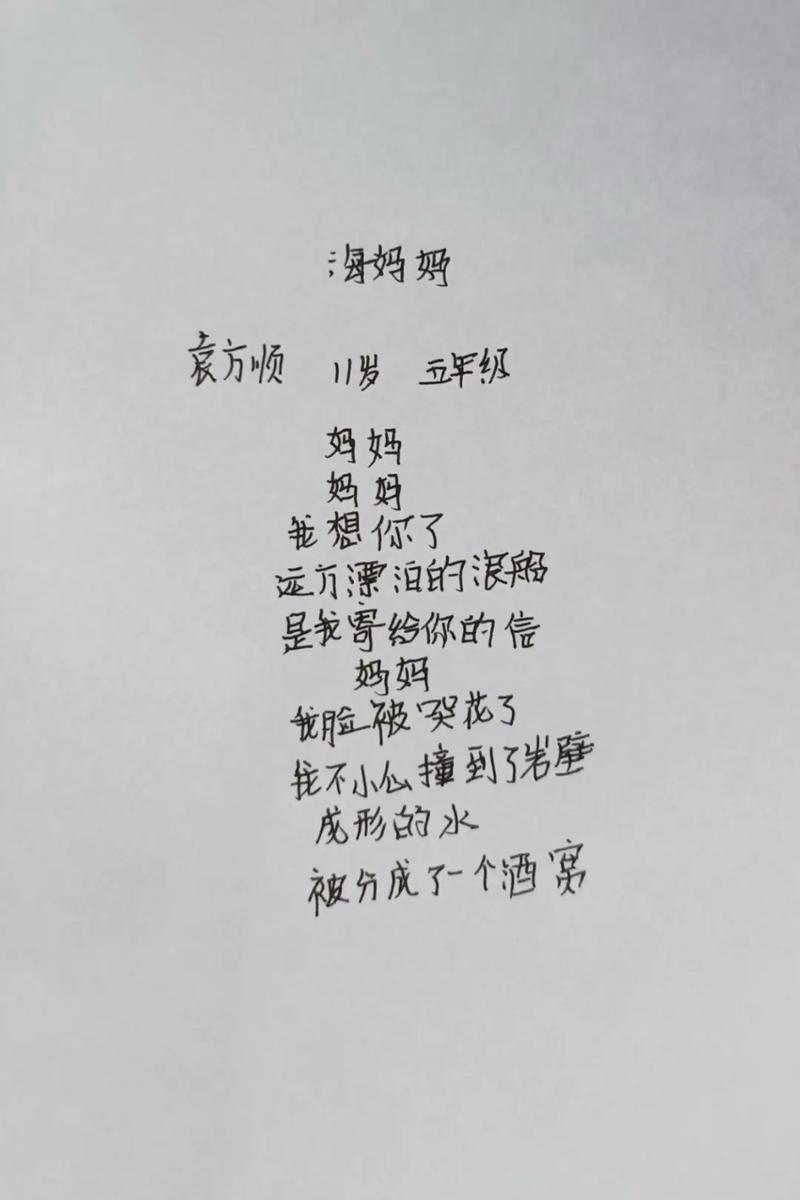 海妈妈
袁方顺 11岁 五年级
妈妈
妈妈
我想你了
远方漂泊的浪船
是我寄给你的信
妈妈
我脸被哭花了
我不小心撞到了岩壁
成形的水
被分成了一个酒窝